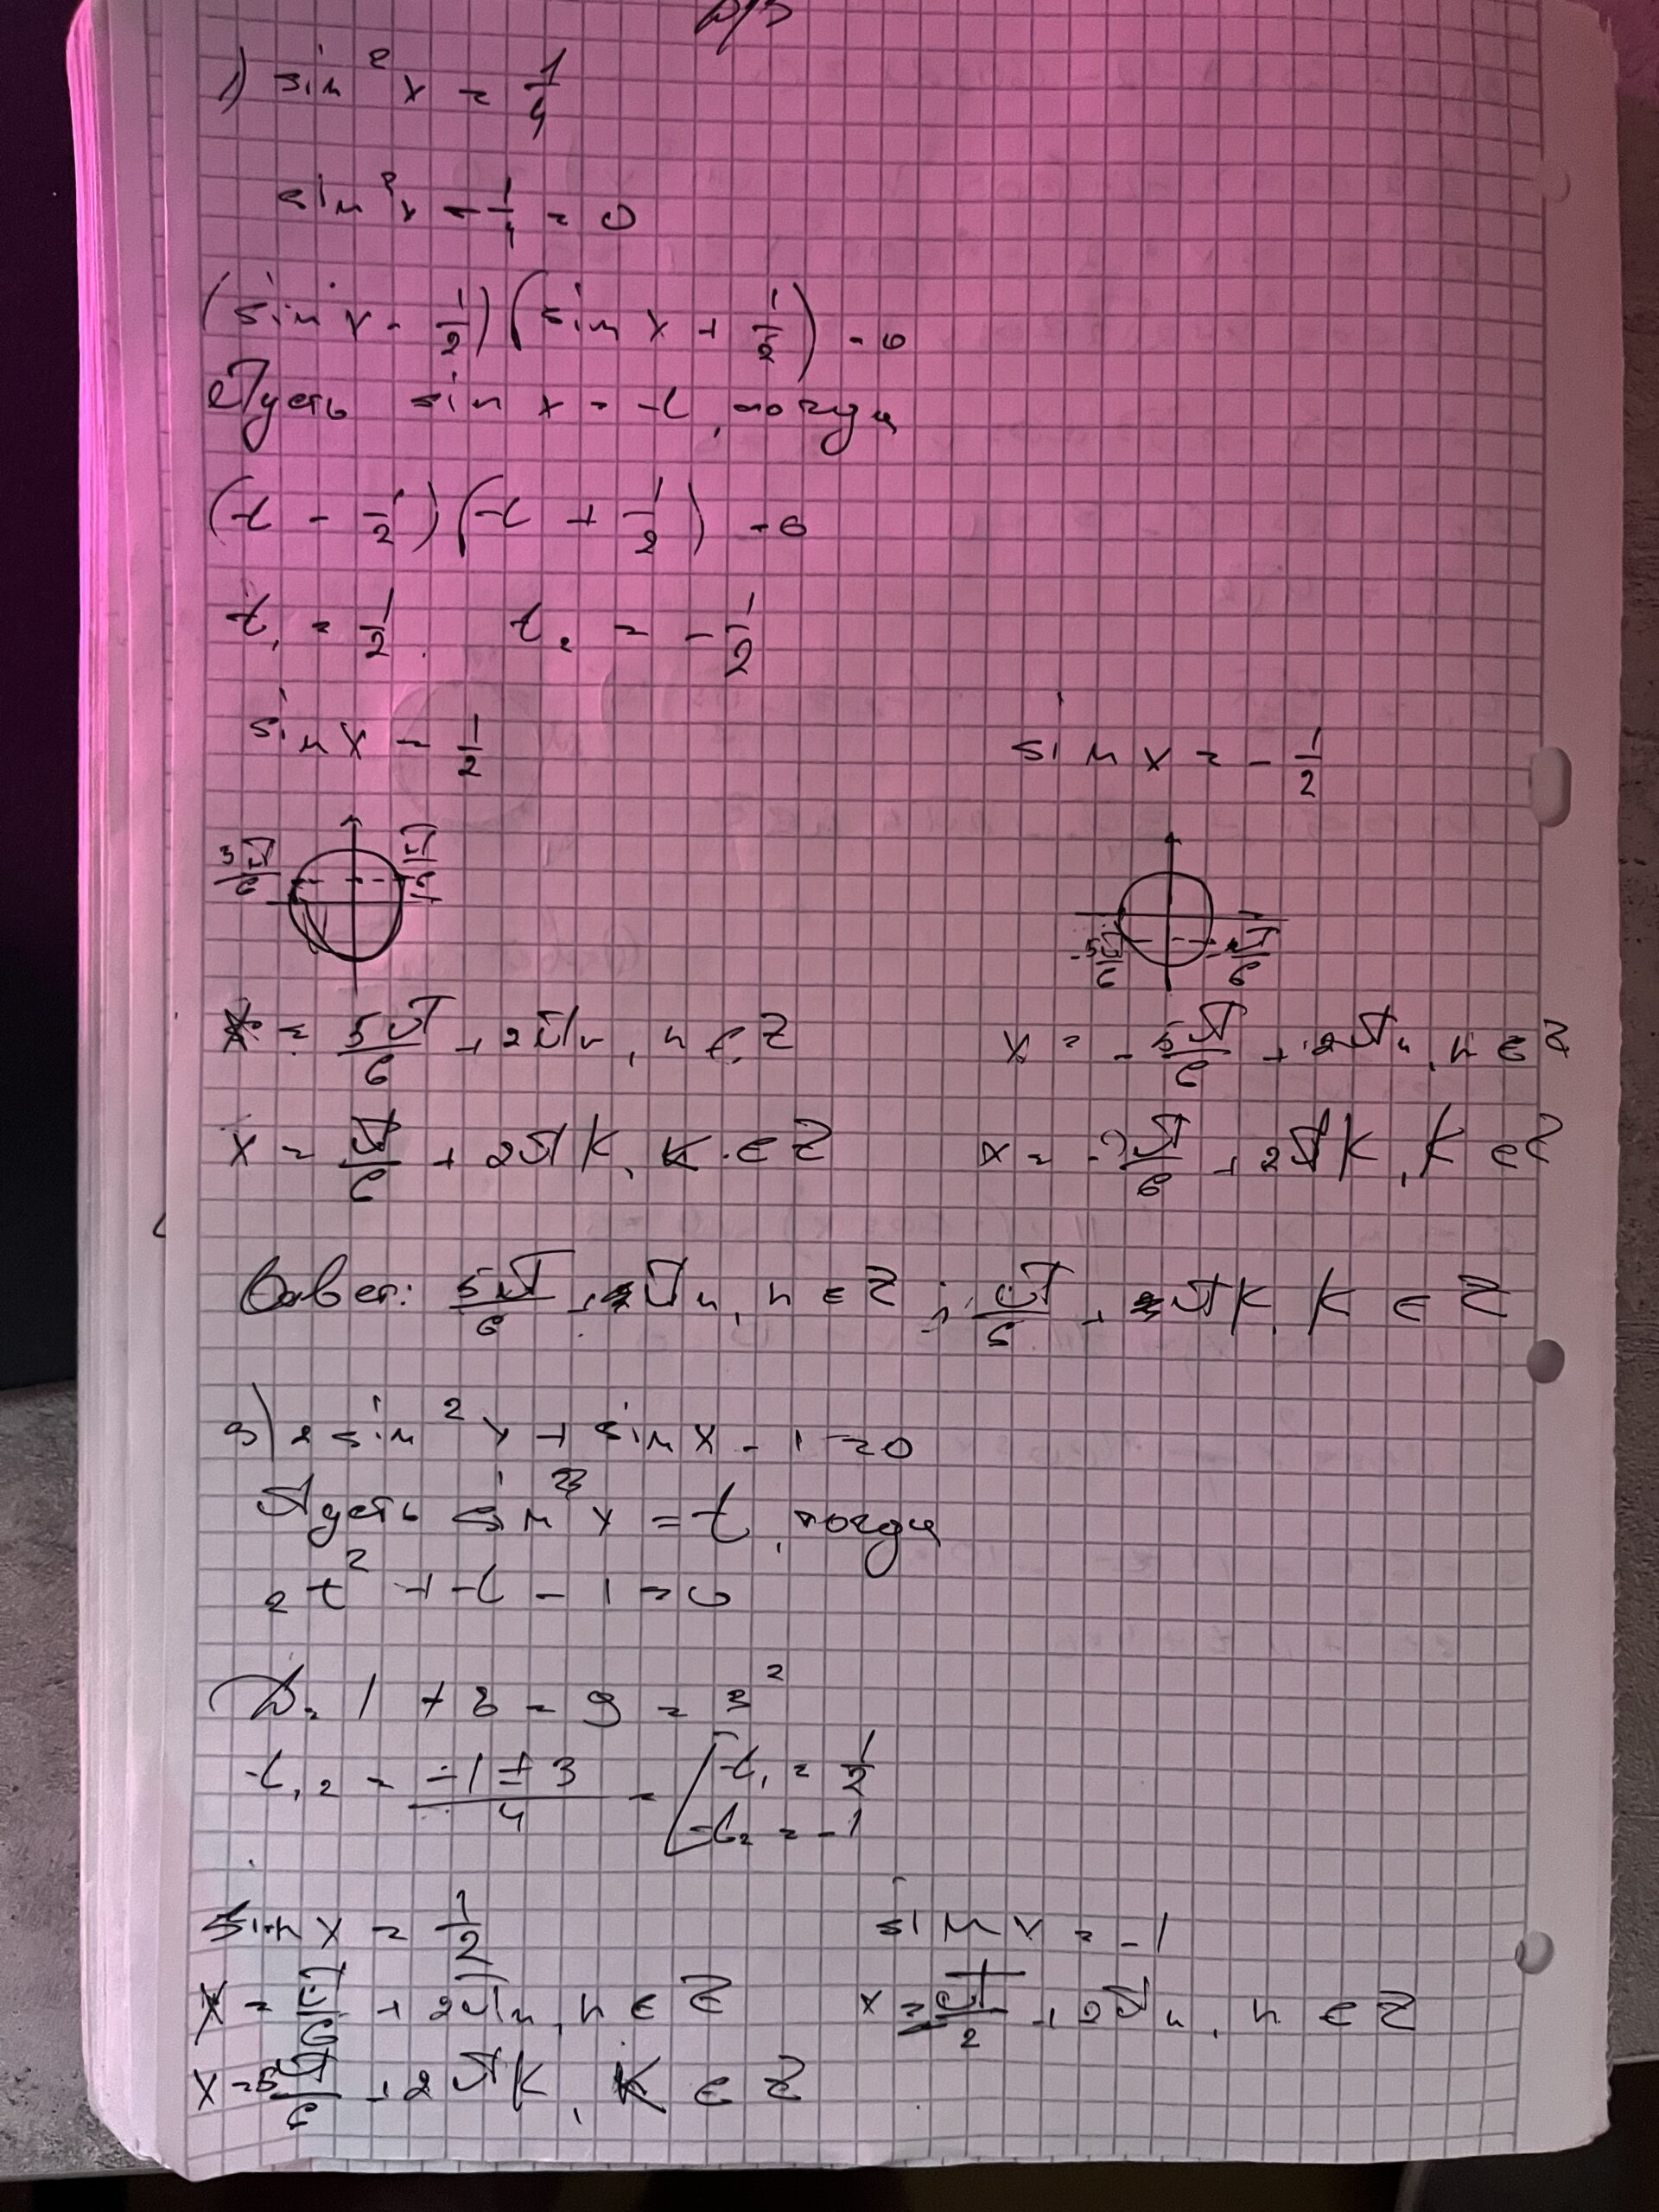 Д/З
1) sin² x = 1/4
sin² x - 1/4 = 0
(sin x - 1/2)(sin x + 1/2) = 0
Пусть sin x = t, тогда
(t - 1/2)(t + 1/2) = 0
t₁ = 1/2. t₂ = - 1/2
sin x = 1/2 sin x = - 1/2
π/6 -5π/6 -π/6
x = 5π/6 + 2πn, n ∈ Z x = - 5π/6 + 2πn, n ∈ Z
x = π/6 + 2πk, k ∈ Z x = - π/6 + 2πk, k ∈ Z
Ответ: 5π/6 + πn, n ∈ Z; π/6 + πk, k ∈ Z
3) 2 sin² x + sin x - 1 = 0
Пусть sin x = t, тогда
2t² + t - 1 = 0
D = 1 + 8 = 9 = 3²
t₁,₂ = (-1 ± 3)/4 = [t₁ = 1/2
t₂ = -1
sin x = 1/2 sin x = -1
x = π/6 + 2πn, n ∈ Z x = π/2 + 2πn, n ∈ Z
x = 5π/6 + 2πk, k ∈ Z